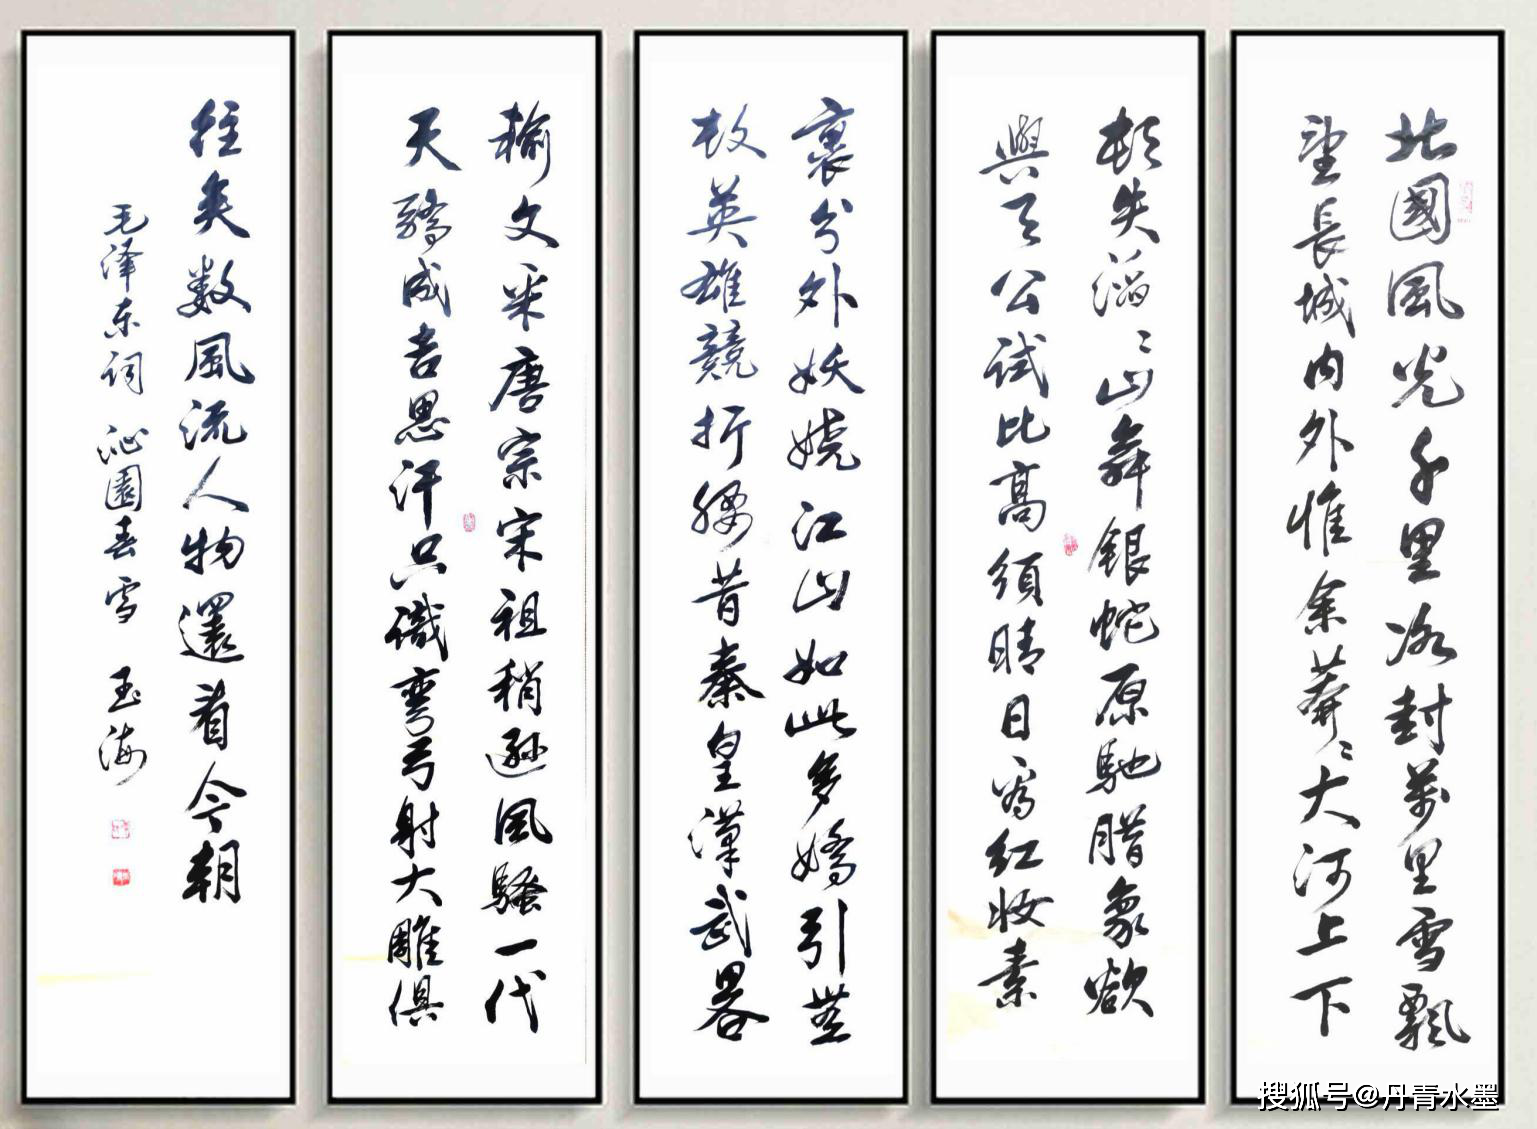 北國風光千里冰封萬里雪飄
望長城内外惟余莽〻大河上下
頓失滔〻山舞銀蛇原馳腊象欲
與天公试比高須晴日看红妆素
裹分外妖娆江山如此多嬌引無
数英雄競折腰昔秦皇漢武畧
輸文采唐宗宋祖稍遜風騷一代
天驕成吉思汗只識弯弓射大雕俱
往矣数風流人物還看今朝
毛泽东词沁園春雪 玉海
搜狐号@丹青水墨